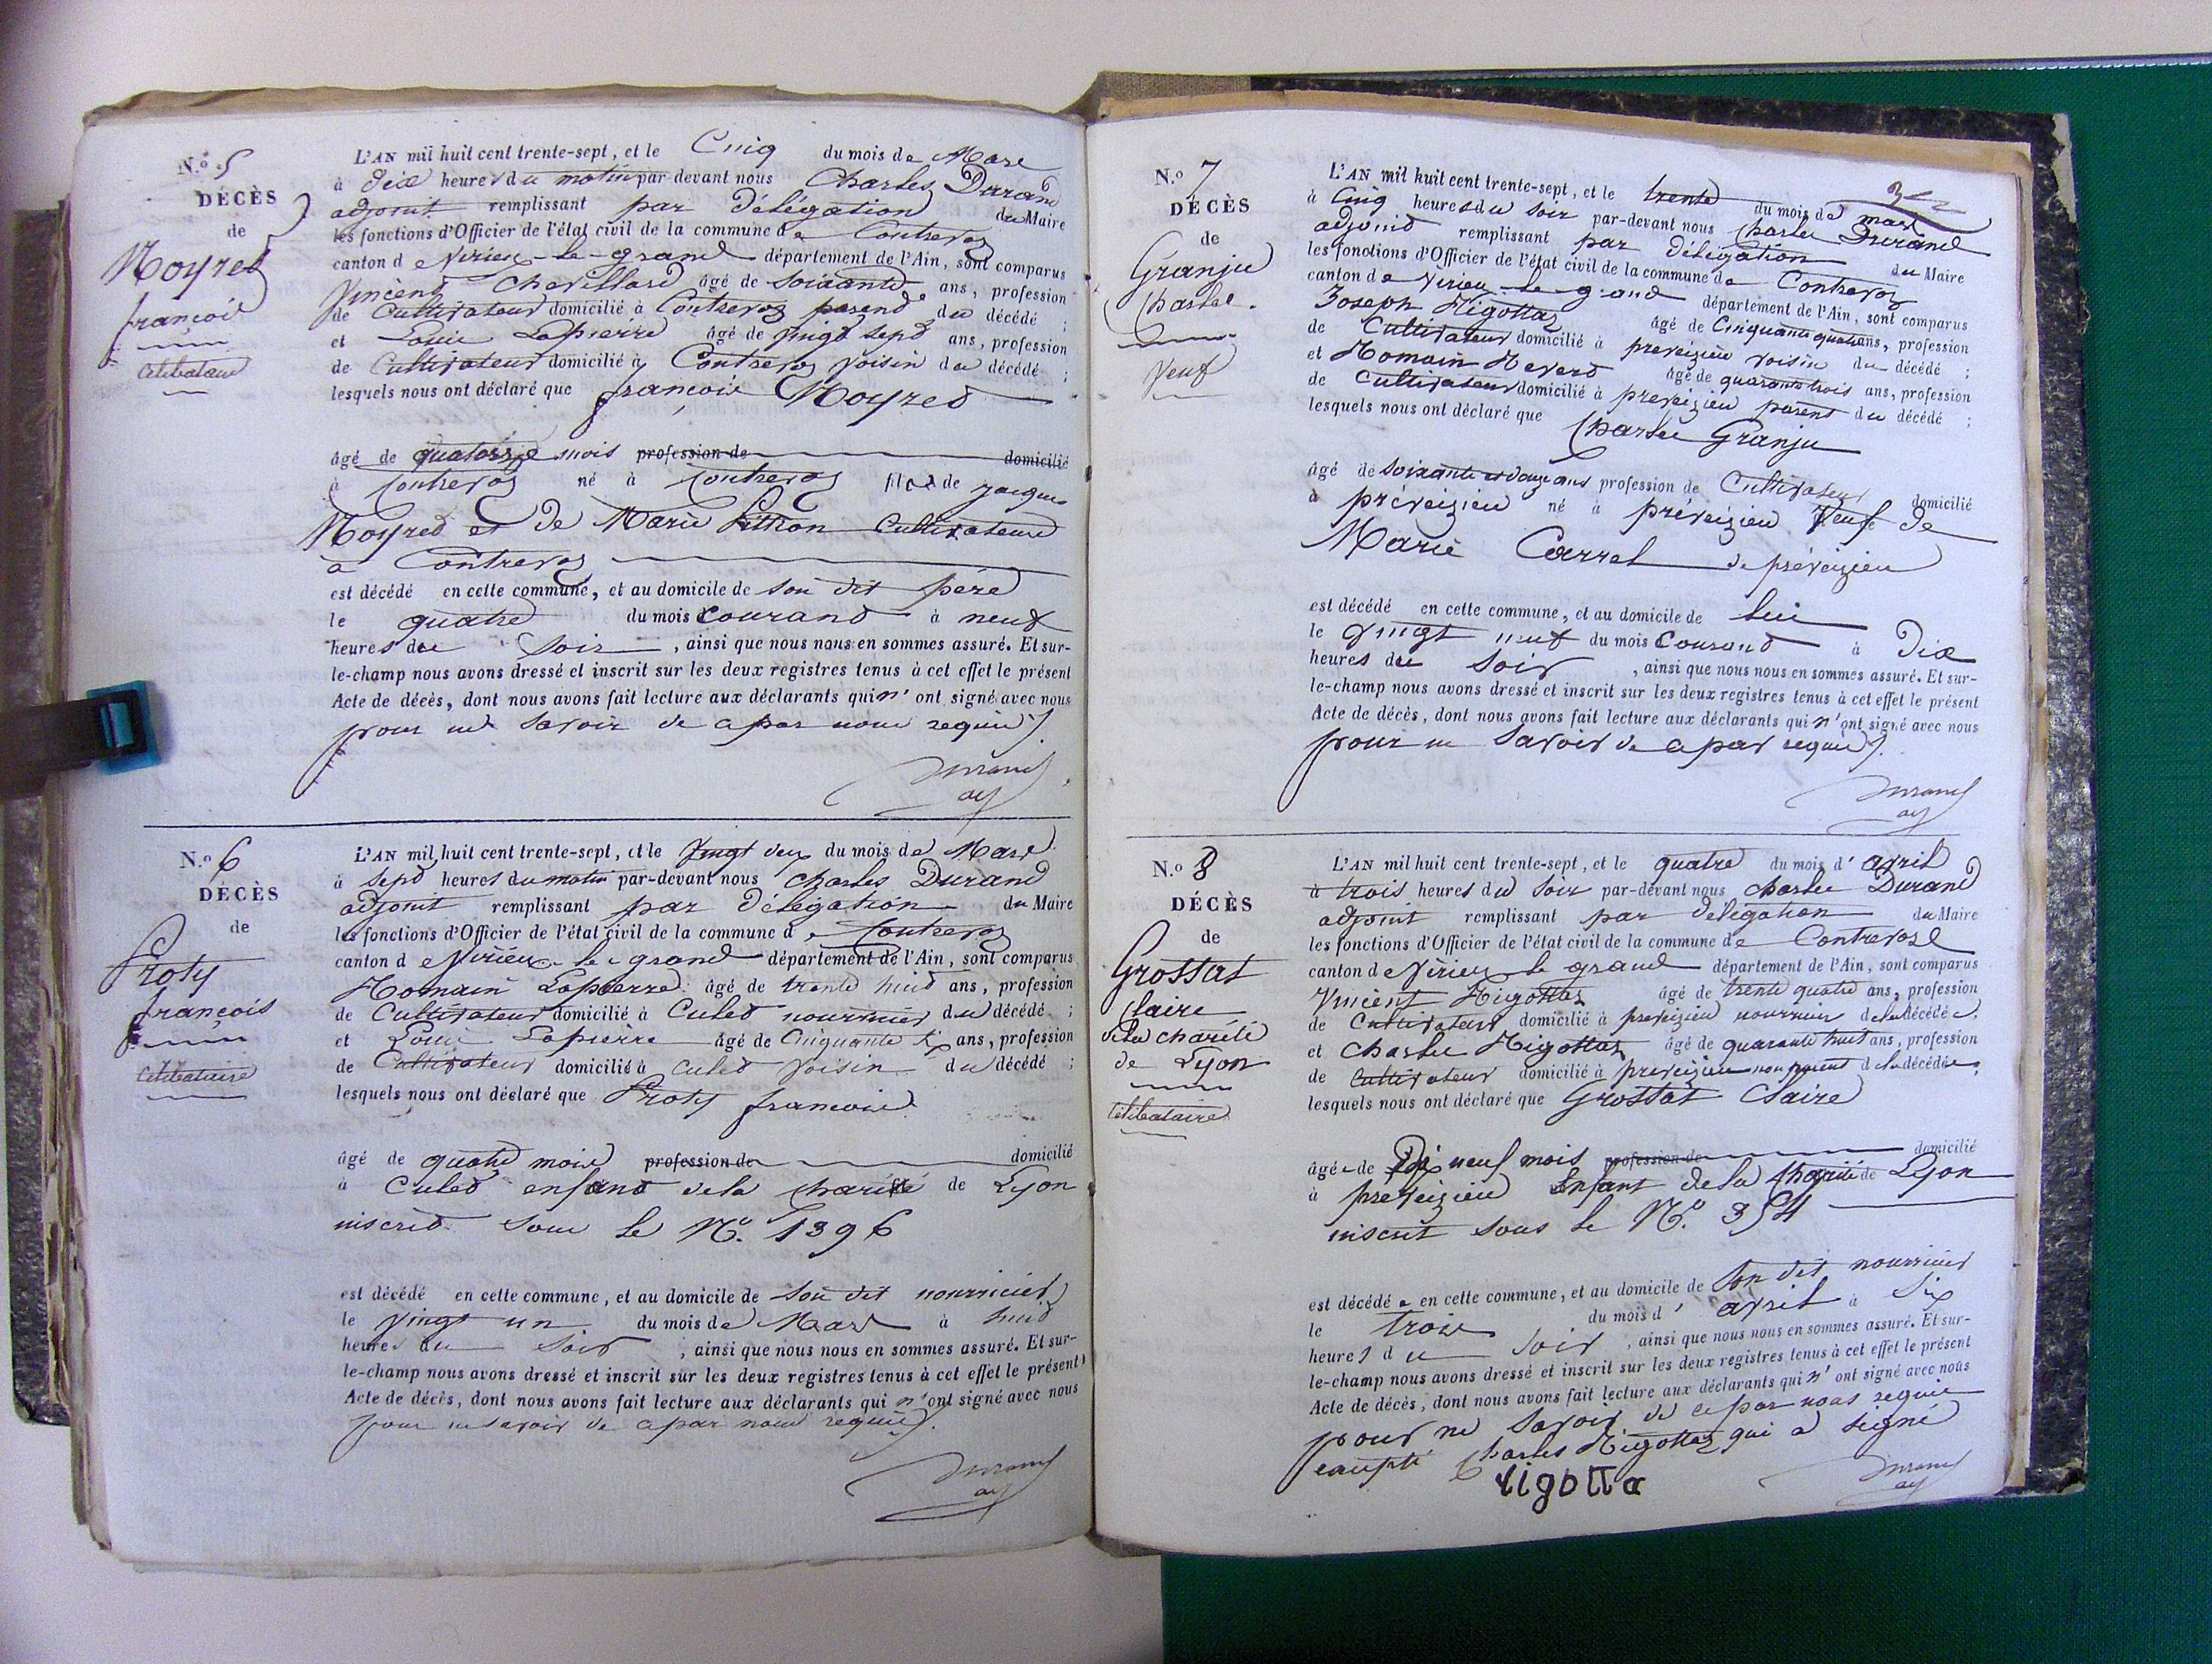 N.º 5
DÉCÈS
de
Moyret
françois
célibataire
L'AN mil huit cent trente-sept, et le Cinq du mois de Mars
à dix heures du matin par-devant nous Charles Durand
adjoint remplissant par délégation du Maire
les fonctions d'Officier de l'état civil de la commune de Contrevoz
canton de Virieu-le-grand département de l'Ain, sont comparus
Vincend Chevillard âgé de soixante ans, profession
de Cultivateur domicilié à Contrevoz parend du décédé ;
et Louis Lapierre âgé de vingt sept ans, profession
de Cultivateur domicilié à Contrevoz voisin du décédé ;
lesquels nous ont déclaré que françois Moyred
âgé de quatorze mois profession de domicilié
à Contrevoz né à Contrevoz fils de jacques
Moyred et de Marie Cultivateurs
a Contrevoz
est décédé en cette commune, et au domicile de son dit père
le quatre du mois courand à neuf
heures du soir, ainsi que nous nous en sommes assuré. Et sur-
le-champ nous avons dressé et inscrit sur les deux registres tenus à cet effet le présent
Acte de décès, dont nous avons fait lecture aux déclarants qui n'ont signé avec nous
pour ne savoir de ce par nous requis.
Durand
adj
N.º 6
DÉCÈS
de
Proty
françois
célibataire
L'AN mil huit cent trente-sept, et le vingt deux du mois de Mars
à sept heures du matin par-devant nous Charles Durand
adjoint remplissant par délégation du Maire
les fonctions d'Officier de l'état civil de la commune de Contrevoz
canton de Virieu-le-grand département de l'Ain, sont comparus
Romain Lapierre âgé de trente huit ans, profession
de Cultivateur domicilié à Culed nourricier du décédé ;
et Louis Lapierre âgé de Cinquante six ans, profession
de Cultivateur domicilié à culed voisin du décédé ;
lesquels nous ont déclaré que Proty françois
âgé de quatre mois profession de domicilié
à Culed enfand de la charité de Lyon
inscrit sous le Nº. 1396
est décédé en cette commune, et au domicile de son dit nourricier
le vingt un du mois de Mars à huid
heures du soir, ainsi que nous nous en sommes assuré. Et sur-
le-champ nous avons dressé et inscrit sur les deux registres tenus à cet effet le présent
Acte de décès, dont nous avons fait lecture aux déclarants qui n'ont signé avec nous
pour ne savoir de ce par nous requis.
Durand
adj
N.º 7
DÉCÈS
de
Granju
Charles
Veuf
L'AN mil huit cent trente-sept, et le trente du mois de mars
à Cinq heures du soir par-devant nous Charles Durand
adjoind remplissant par délégation du Maire
les fonctions d'Officier de l'état civil de la commune de Contrevoz
canton de Virieu-le-grand département de l'Ain, sont comparus
Joseph Rigottaz âgé de Cinquante quatre ans, profession
de Cultivateur domicilié à preveizieu voisin du décédé ;
et Romain Reverd âgé de quarante trois ans, profession
de Cultivateur domicilié à preveizieu parent du décédé ;
lesquels nous ont déclaré que Charles Granju
âgé de soixante et douze ans profession de Cultivateur domicilié
à préveizieu né à préveizieu Veuf de
Marie Carrel de préveizieu
est décédé en cette commune, et au domicile de lui
le Vingt neuf du mois Courand à Dix
heures du soir, ainsi que nous nous en sommes assuré. Et sur-
le-champ nous avons dressé et inscrit sur les deux registres tenus à cet effet le présent
Acte de décès, dont nous avons fait lecture aux déclarants qui n'ont signé avec nous
pour ne savoir de ce par requis.
Durand
adj
N.º 8
DÉCÈS
de
Grossat
Claire
de la charité
de Lyon
célibataire
L'AN mil huit cent trente-sept, et le quatre du mois d'avril
à trois heures du soir par-devant nous Charles Durand
adjoint remplissant par délégation du Maire
les fonctions d'Officier de l'état civil de la commune de Contrevoz
canton de Virieu le grand département de l'Ain, sont comparus
Vincent Rigottaz âgé de trente quatre ans, profession
de Cultivateur domicilié à preveizieu nourricier de la décédée ;
et Charles Rigottaz âgé de quarante huit ans, profession
de Cultivateur domicilié à preveizieu non parent de la décédée ;
lesquels nous ont déclaré que Grossat Claire
âgée de Dix neuf mois profession de domicilié
à preveizieu Enfant de la Charité de Lyon
inscrit sous le Nº. 354
est décédée en cette commune, et au domicile de son dit nourricier
le trois du mois d'avril à six
heures du soir, ainsi que nous nous en sommes assuré. Et sur-
le-champ nous avons dressé et inscrit sur les deux registres tenus à cet effet le présent
Acte de décès, dont nous avons fait lecture aux déclarants qui n'ont signé avec nous
pour ne savoir de ce par nous requis
excepté Charles Rigottaz qui a signé
rigotta
Durand
adj